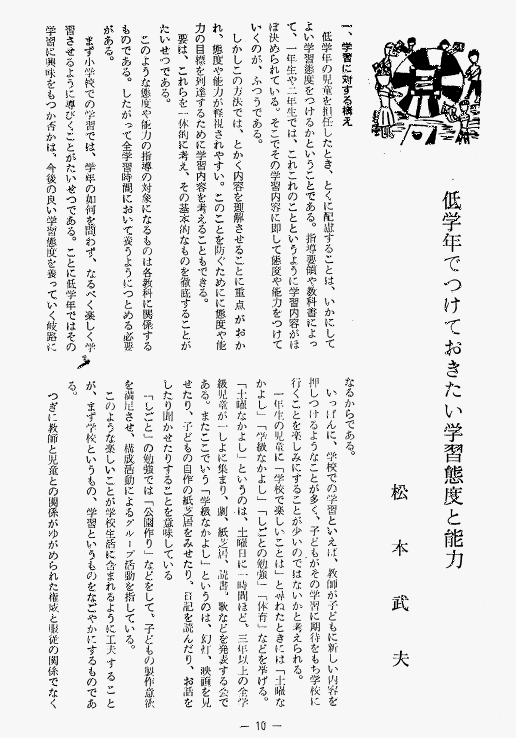 低学年でつけておきたい学習態度と能力
松本武夫
一、学習に対する構え
低学年の児童を担任したとき、とくに配慮することは、いかにして
よい学習態度をつけるかということである。指導要領や教科書によっ
て、一年生や二年生では、これこれのことというように学習内容がほ
ぼ決められている。そこでその学習内容に即して態度や能力をつけて
いくのが、ふつうである。
しかしこの方法では、とかく内容を理解させることに重点がおか
れ、態度や能力が軽視されやすい。このことを防ぐためにに態度や能
力の目標を列達するために学習内容を考えることもできる。
要は、これらを一体的に考え、その基本的なものを徹底することが
たいせつである。
このような態度や能力の指導の対象になるものは各教科に関係する
ものである。したがって全学習時間において養うようにつとめる必要
がある。
まず小学校での学習では、学年の如何を問わず、なるべく楽しく学
習させるように導びくことがたいせつである。ことに低学年ではその
学習に興味をもつか否かは、今後の良い学習態度を養っていく岐路に
なるからである。
いっぱんに、学校での学習といえば、教師が子どもに新しい内容を
押しつけるようなことが多く、子どもがその学習に期待をもち学校に
行くことを楽しみにすることが少いのではないかと考えられる。
一年生の児童に「学校で楽しいことは」と尋ねたときには「土曜な
かよし」「学級なかよし」「しごとの勉強」「体育」などを挙げる。
「土曜なかよし」というのは、土曜日に一時間ほど、三年以上の全学
級児童が一しよに集まり、劇、紙芝居、読書、歌などを発表する会で
ある。またここでいう「学級なかよし」というのは、幻灯、映画を見
せたり、子どもの自作の紙芝居をみせたり、日記を読んだり、お話を
したり聞かせたりすることを意味している
「しごと」の勉強では「公園作り」などをして、子どもの製作意欲
を満足させ、構成活動によるグループ活動を指している。
このような楽しいことが学校生活に含まれるように工夫すること
が、まず学校というもの、学習というものをなごやかにするものであ
る。
つぎに教師と児童との関係がゆがめられた権威と服従の関係でなく
— 10 —